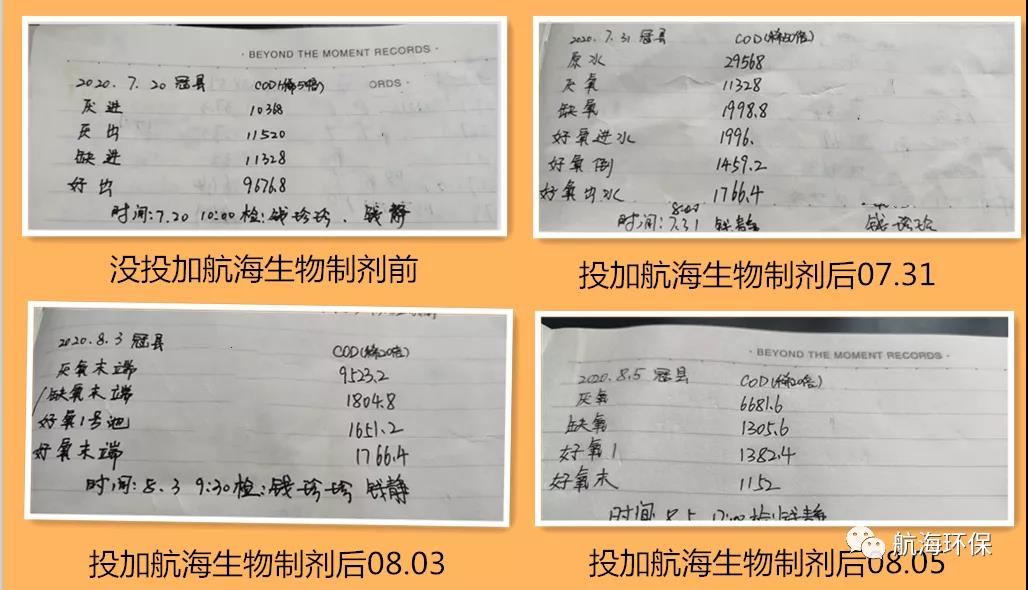 · BEYOND THE MOMENT RECORDS ·
ORDS ·
2020. 7. 20 冠县 COD(稀50倍)
厌进 10368
厌出 11520
缺进 11328
好出 9676.8
时间:7.20 10:00 检:钱珍珍. 钱静
没投加航海生物制剂前
2020. 7. 31 冠县 COD(稀50倍)
原水 29568
厌氧 11328
缺氧 1998.8
好氧进水 1996.
好氧倒 1459.2
好氧出水 1766.4
时间:7.31 钱静 钱珍珍
投加航海生物制剂后07.31
2020. 8. 3 冠县
COD(稀20倍)
厌氧末端 9523.2
缺氧末端 1804.8
好氧1号池 1651.2
好氧末端 1766.4
时间:8.3 9:30 检:钱珍珍 钱静
投加航海生物制剂后08.03
· BEYOND THE MOMENT RECORDS ·
2020. 8. 5 冠县 COD(稀20倍)
厌氧 6681.6
缺氧 1305.6
好氧1 1382.4
好氧末 1152
时间 8.5 检:钱静
航海环保
投加航海生物制剂后08.05